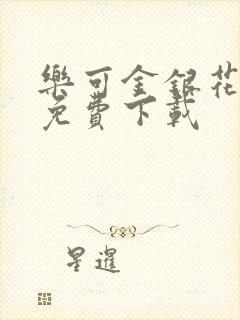 樂可金銀花
免費下載
星暹